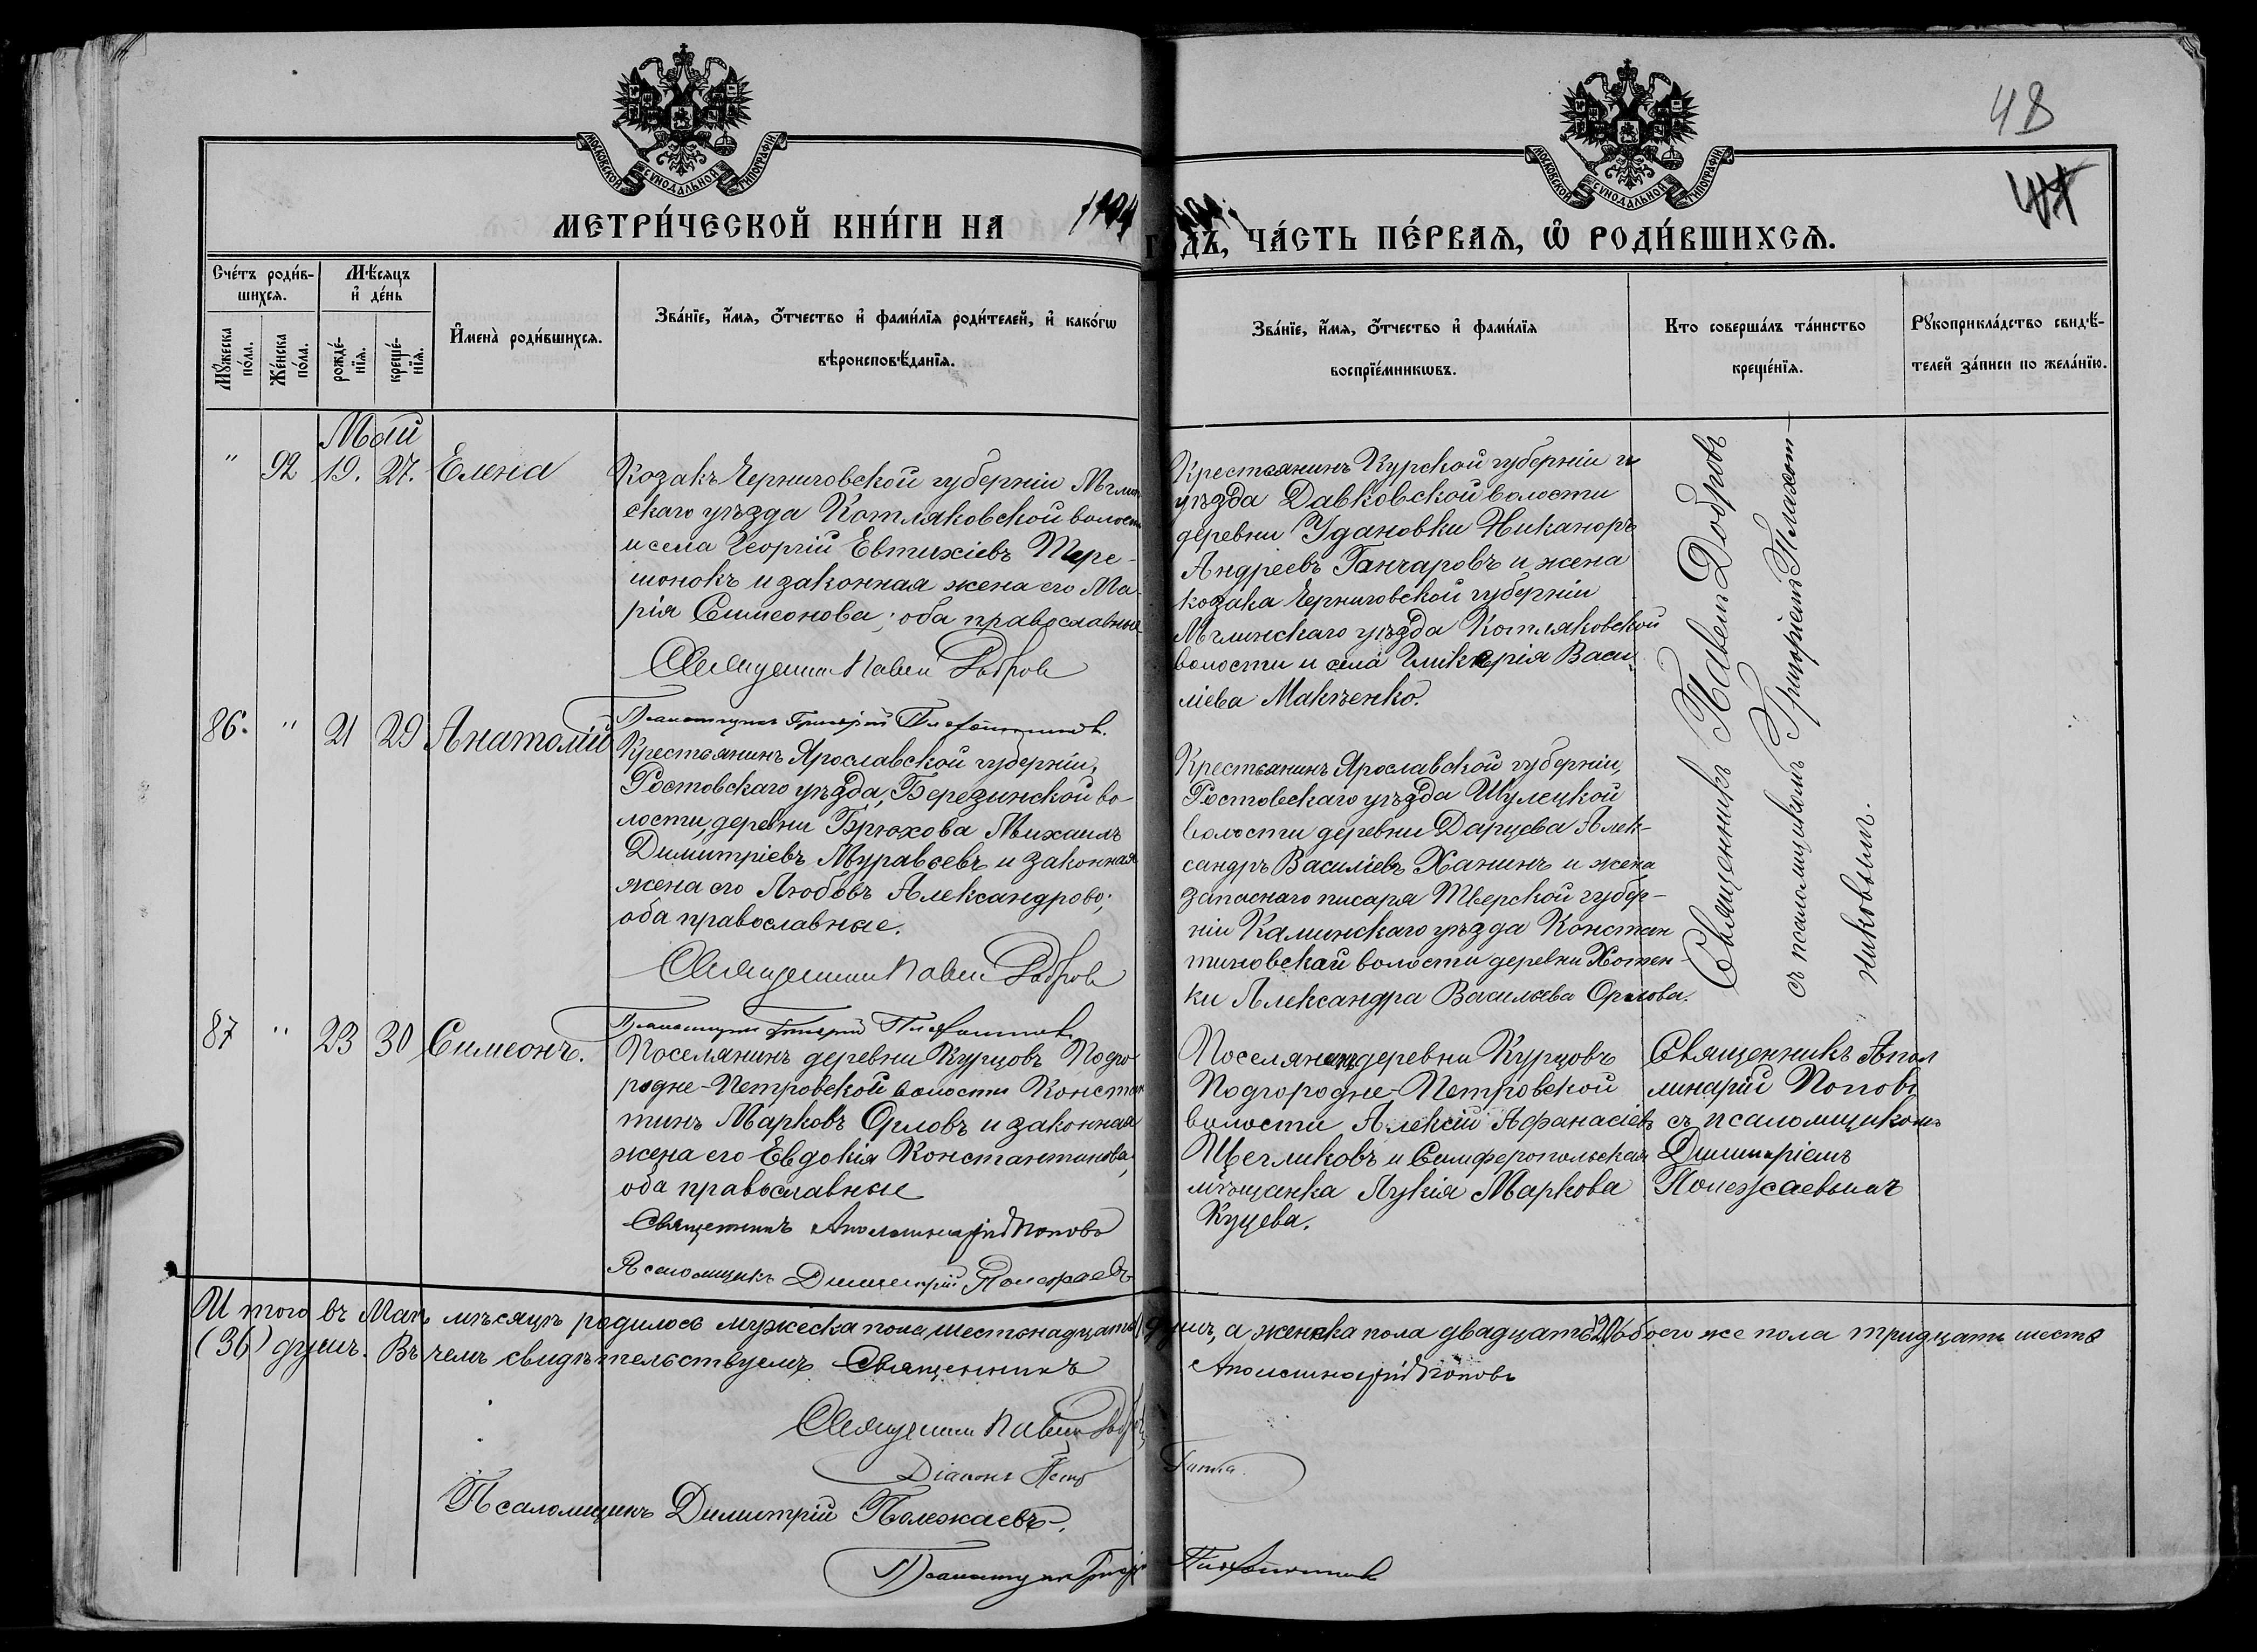 48
МОСКОВСКОЙ СѴНОДАЛЬНОЙ ТИПОГРАФІИ
МОСКОВСКОЙ СѴНОДАЛЬНОЙ ТИПОГРАФІИ
МЕТРИ́ЧЕСКОЙ КНИ́ГИ НА
ГОДЪ, ЧА́СТЬ ПЕ́РВАѦ, Ѡ҆ РОДИ́ВШИХСѦ.
Сче́тъ роди́в-
шихсѧ.
Мѣ́сѧцъ
и҆ де́нь
Мꙋ́жеска
по́ла.
Же́нска
по́ла.
рожде́-
нїѧ.
креще́-
нїѧ.
И҆мена̀ роди́вшихсѧ.
Зва́нїе, и҆́мѧ, ѻ҆́тчество и҆ фами́лїѧ роди́телей, и҆ како́гѡ
вѣроисповѣ́данїѧ.
Зва́нїе, и҆́мѧ, ѻ҆́тчество и҆ фами́лїѧ
воспрїе́мникѡвъ.
Кто соверша́лъ та́инство
креще́нїѧ.
Рꙋкоприкла́дство свидѣ́-
телей за́писи по жела́нїю.
Май
" 92 19. 27. Елена
Козакъ Черниговской губерніи Мглин
скаго уѣзда Котляковской волости
и села Георгій Евтихіевъ Тере-
шонокъ и законная жена его Ма-
рія Симеонова; оба православные
Священникъ Павелъ Добровъ
Псаломщикъ Григорій Плахотниковъ.
Крестьянинъ Курской губерніи и
уѣзда Давковской волости
деревни Удановки Никаноръ
Андреевъ Ганчаровъ и жена
козака Черниговской губерніи
Мглинскаго уѣзда Котляковской
волости и села Гликерія Васи-
ліева Макѣенко.
Священникъ Павелъ Добровъ
съ псаломщикомъ Григоріемъ Плахот-
никовымъ.
86. " 21 29 Анатолій
Крестьянинъ Ярославской губерніи,
Ростовскаго уѣзда, Березинской во-
лости, деревни Брюхова Михаилъ
Димитріевъ Муравьевъ и законная
жена его Любовь Александрово;
оба православные.
Священникъ Павелъ Добровъ
Псаломщикъ Григорій Плахотниковъ
Крестьянинъ Ярославской губерніи,
Ростовскаго уѣзда Шулецкой
волости деревни Дарцева Алек-
сандръ Василіевъ Ханинъ и жена
запаснаго писаря Тверской губер-
ніи Калинскаго уѣзда Констан
тиновской волости деревни Хотен-
ки Александра Васильева Орлова.
87 " 23 30 Симеонъ.
Поселянинъ деревни Курцовъ Подго
родне-Петровской волости Констан
тинъ Марковъ Орловъ и законная
жена его Евдокія Константинова,
оба православные
Священникъ Аполлинарій Поповъ
Псаломщикъ Димитрій Полежаевъ
Поселянинъ деревни Курцовъ
Подгородне-Петровской
волости Алексій Афанасіевъ
Щегликовъ и Симферопольская
мѣщанка Лукія Маркова
Куцева.
Священникъ Апол
линарій Поповъ
съ псаломщикомъ
Димитріемъ
Полежаевымъ
И того въ Маѣ мѣсяцѣ родилось мужеска пола шестьнадцать душъ, а женска пола двадцать (20) обоего же пола тридцать шесть
(36) душъ. Въ чемъ свидѣтельствуемъ Священникъ Аполлинарій Поповъ
Священникъ Павелъ Добровъ
Діаконъ
Псаломщикъ Димитрій Полежаевъ.
Псаломщикъ Григорій Плахотниковъ